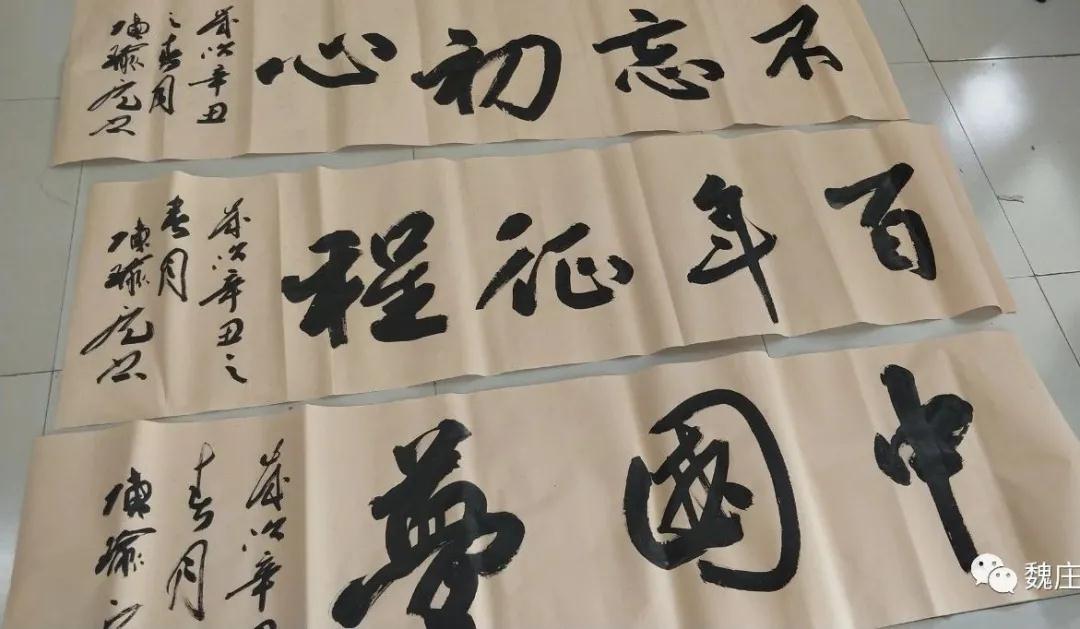 不忘初心
岁次辛丑
之春月
陈瑜亮书
百年征程
岁次辛丑之
春月
陈瑜亮书
中國夢
岁次辛丑
春月
陈瑜
魏庄